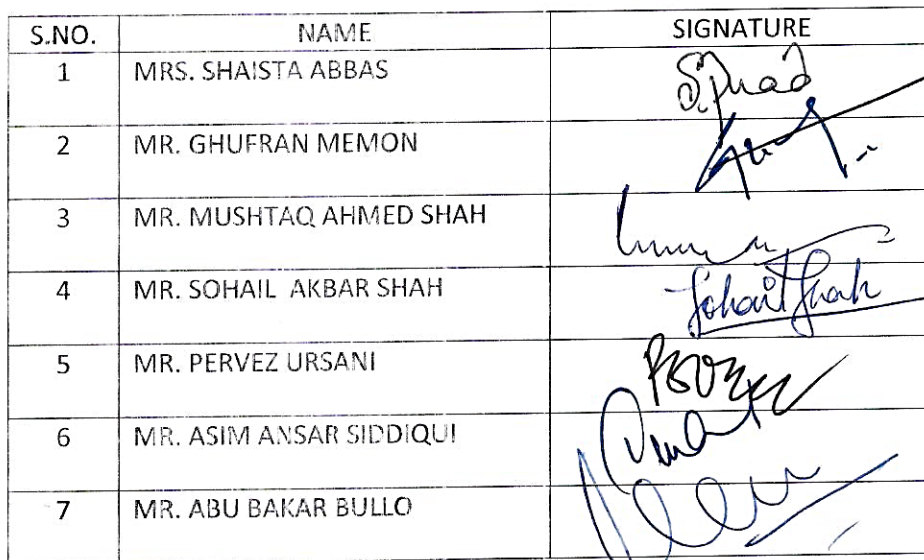 S.NO. NAME SIGNATURE
1 MRS. SHAISTA ABBAS
2 MR. GHUFRAN MEMON
3 MR. MUSHTAQ AHMED SHAH
4 MR. SOHAIL AKBAR SHAH Sohail Shah
5 MR. PERVEZ URSANI
6 MR. ASIM ANSAR SIDDIQUI
7 MR. ABU BAKAR BULLO